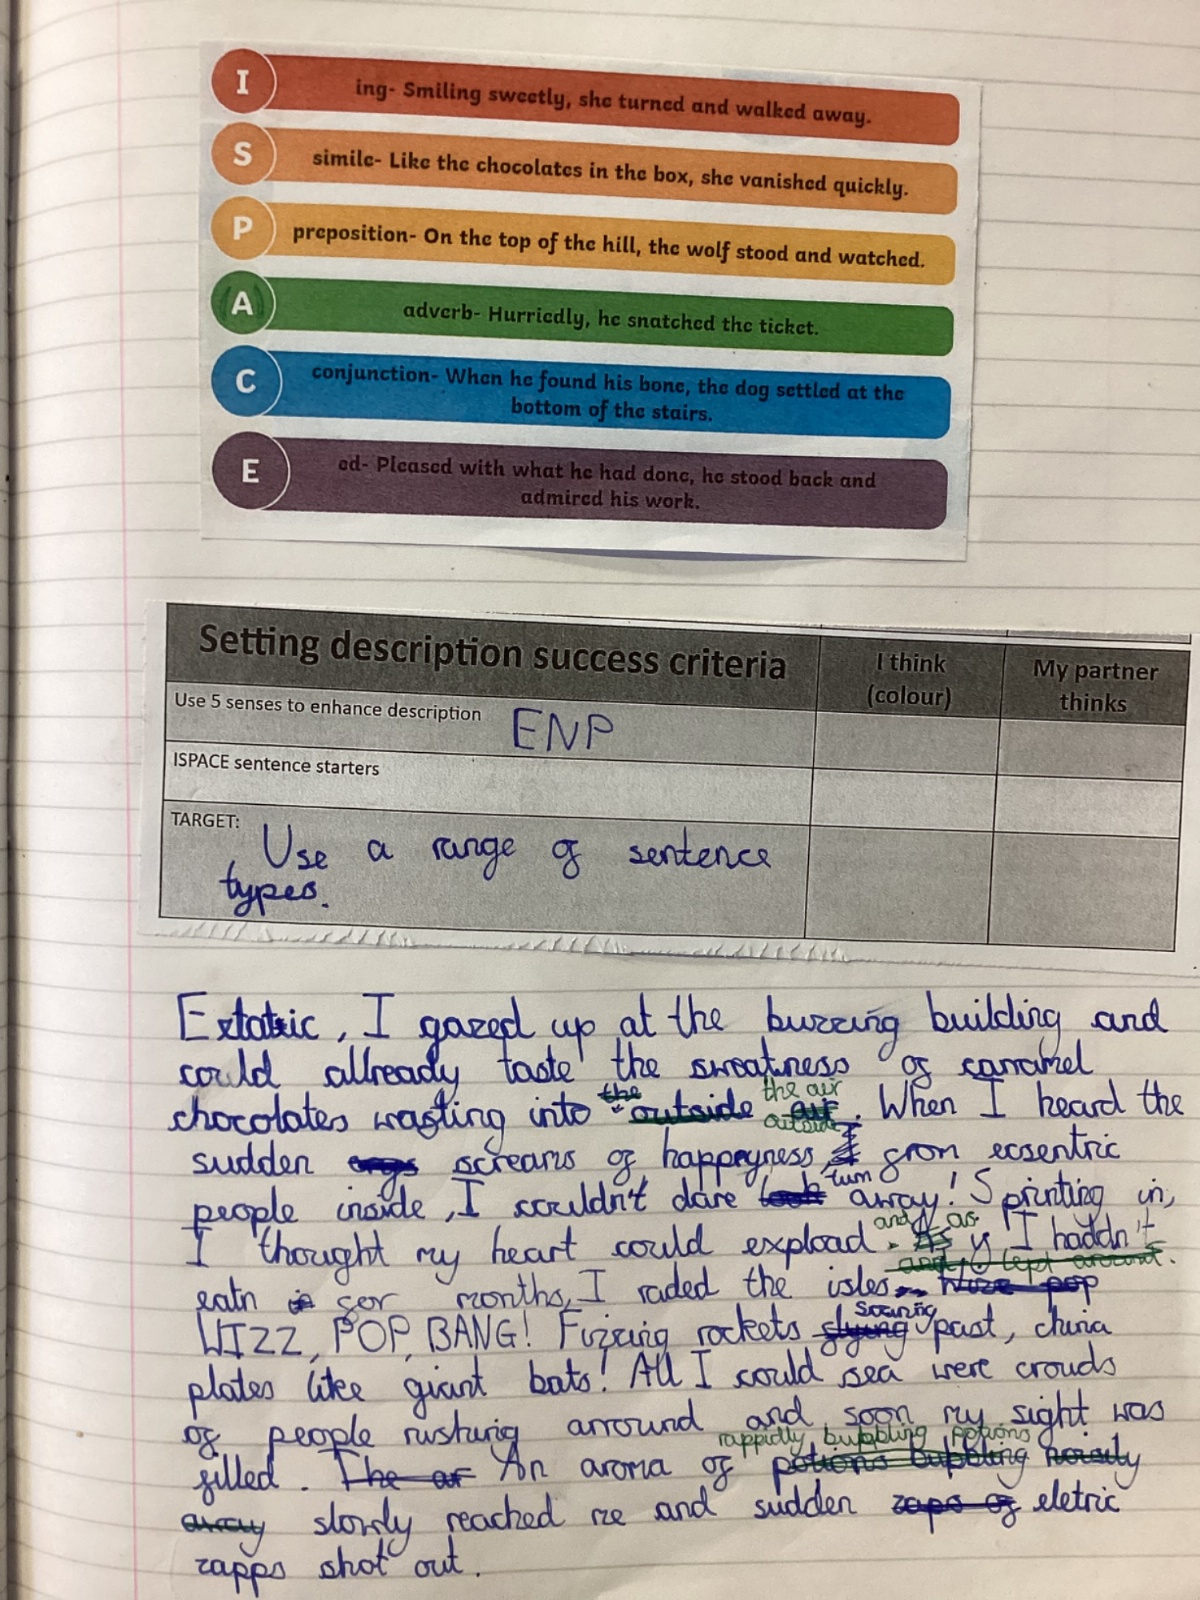 I
ing- Smiling sweetly, she turned and walked away.
S
simile- Like the chocolates in the box, she vanished quickly.
P
preposition- On the top of the hill, the wolf stood and watched.
A
adverb- Hurriedly, he snatched the ticket.
C
conjunction- When he found his bone, the dog settled at the
bottom of the stairs.
E
ed- Pleased with what he had done, he stood back and
admired his work.
Setting description success criteria
I think
(colour)
My partner
thinks
Use 5 senses to enhance description ENP
ISPACE sentence starters
TARGET: Use a range of sentence
types.
Extatic, I gazed up at the buzzing building and
could allready taste the sweatness of carramel
the the air
chocolates wafting into outside air. When I heard the
outside
sudden screams of happyness, from eccsentric
turn
people inside, I couldn't dare look away! Sprinting in,
and as
I thought my heart could expload. As if I haddn't
and lept around.
eatn for months, I raded the isles wizz pop
soaring
WIZZ, POP, BANG! Fizzing rockets flying past, china
plates like giant bats! All I could sea were crouds
of people rushing arround and soon my sight was
rappidly bubbling potions
filled. The ar An aroma of potions bubbling noisily
away slowly reached me and sudden zaps of eletric
zapps shot out.